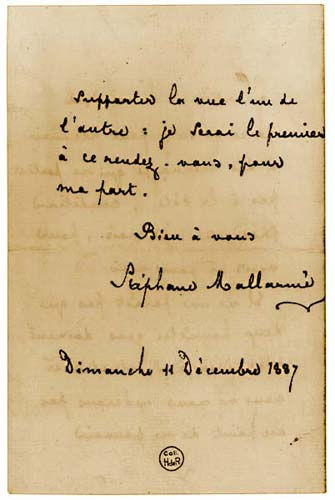 supporter la vue l'une de
l'autre : je serai le premier
à ce rendez-vous, pour
ma part.
Bien à vous
Stéphane Mallarmé
Dimanche 11 Décembre 1887
Coll.
HdeR